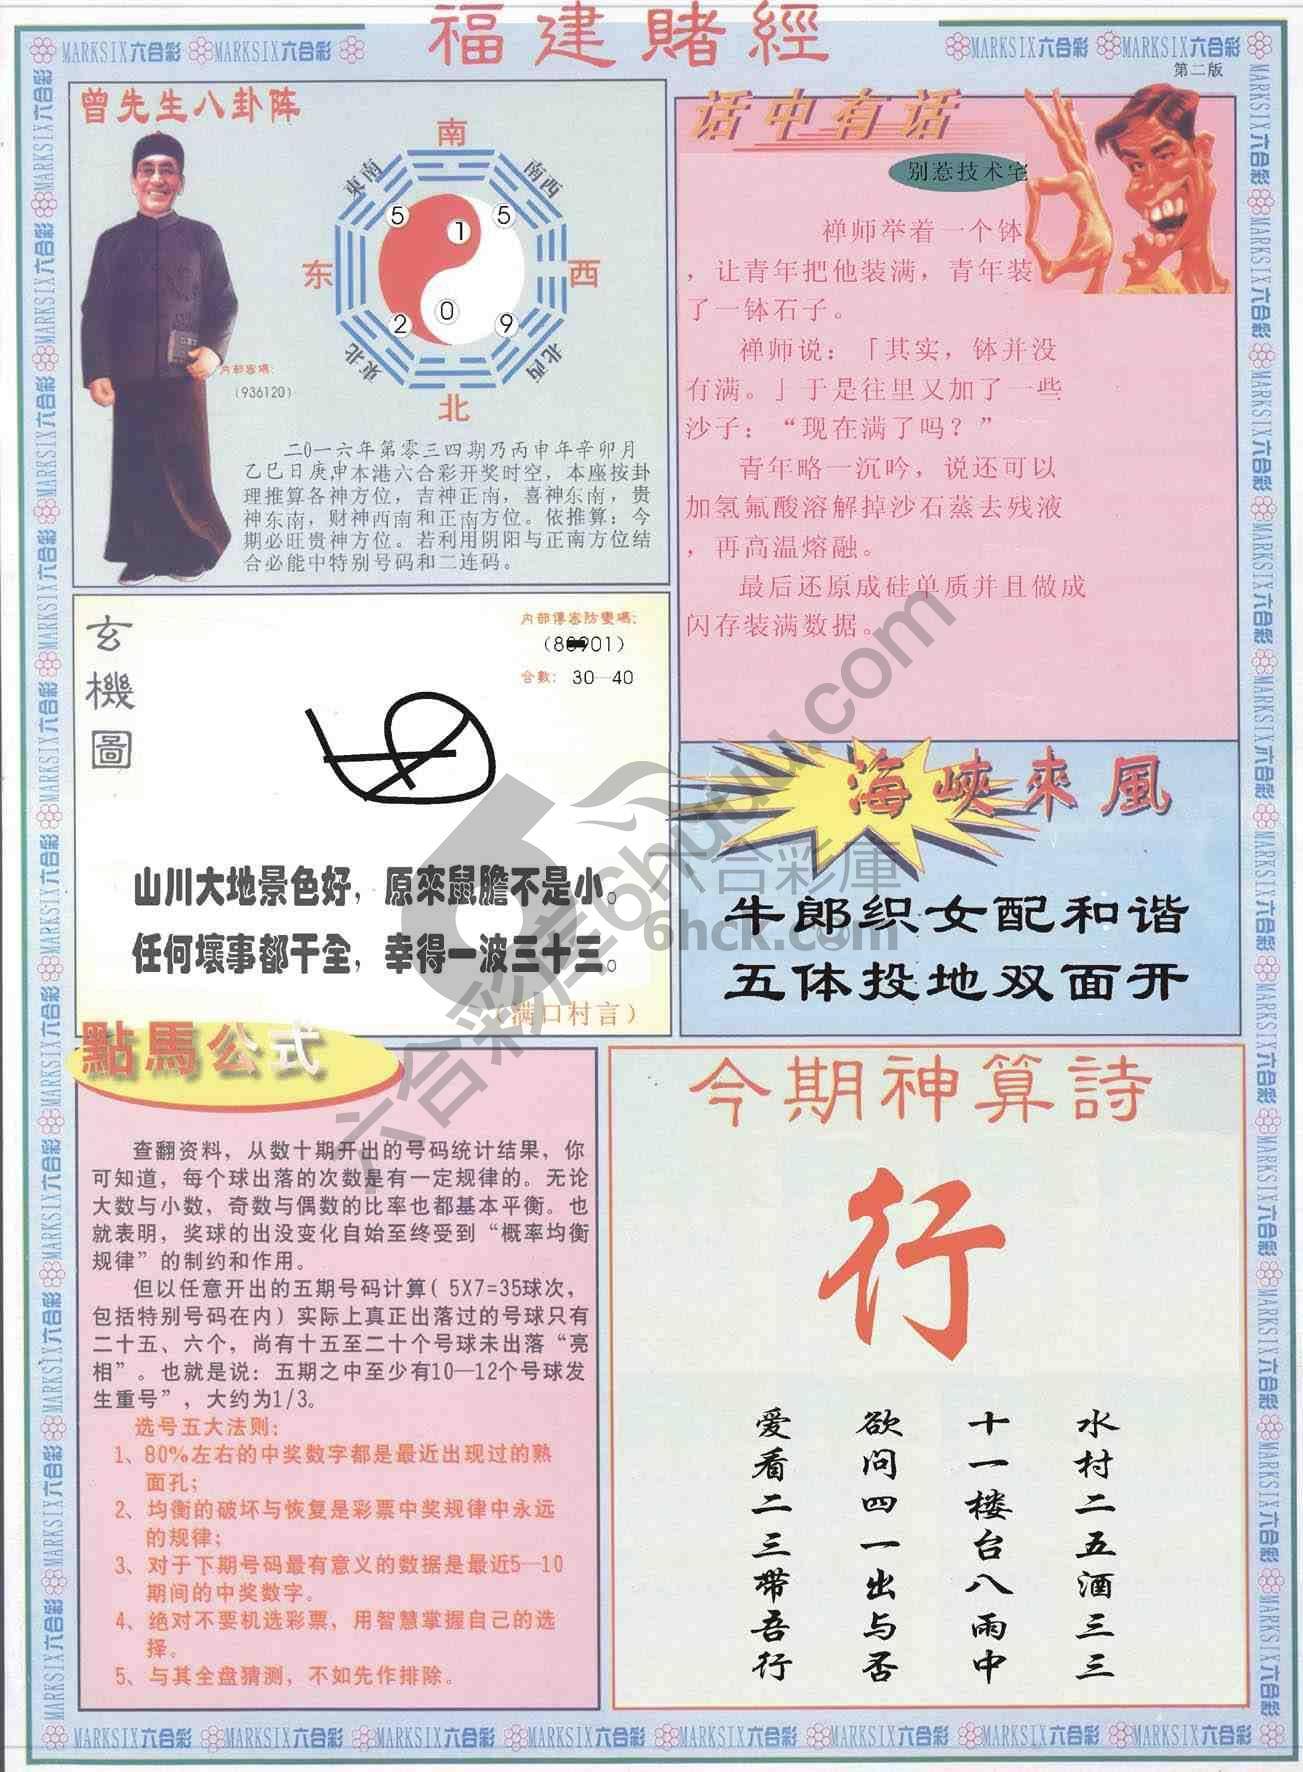 福建賭經
MARKSIX六合彩 MARKSIX六合彩
MARKSIX六合彩 MARKSIX六合彩
第二版
曾先生八卦阵
南
東南
南西
5
1
5
东
西
2
0
9
東北
北西
北
内部密碼：
（936120）
二0一六年第零三四期乃丙申年辛卯月
乙巳日庚申本港六合彩开奖时空，本座按卦
理推算各神方位，吉神正南，喜神东南，贵
神东南，财神西南和正南方位。依推算：今
期必旺贵神方位。若利用阴阳与正南方位结
合必能中特别号码和二连码。
话中有话
别惹技术宅
禅师举着一个钵
，让青年把他装满，青年装
了一钵石子。
禅师说：「其实，钵并没
有满。」于是往里又加了一些
沙子：“现在满了吗？”
青年略一沉吟，说还可以
加氢氟酸溶解掉沙石蒸去残液
，再高温熔融。
最后还原成硅单质并且做成
闪存装满数据。
玄機圖
内部傳密防變碼：
合數： 30—40
山川大地景色好，原來鼠膽不是小。
任何壞事都干全，幸得一波三十三。
（满口村言）
海峽來風
牛郎织女配和谐
五体投地双面开
六合彩庫
6hck.com
點馬公式
查翻资料，从数十期开出的号码统计结果，你
可知道，每个球出落的次数是有一定规律的。无论
大数与小数，奇数与偶数的比率也都基本平衡。也
就表明，奖球的出没变化自始至终受到“概率均衡
规律”的制约和作用。
但以任意开出的五期号码计算（5X7=35球次，
包括特别号码在内）实际上真正出落过的号球只有
二十五、六个，尚有十五至二十个号球未出落“亮
相”。也就是说：五期之中至少有10—12个号球发
生重号”，大约为1/3。
选号五大法则：
1、80%左右的中奖数字都是最近出现过的熟
面孔；
2、均衡的破坏与恢复是彩票中奖规律中永远
的规律；
3、对于下期号码最有意义的数据是最近5—10
期间的中奖数字。
4、绝对不要机选彩票，用智慧掌握自己的选
择。
5、与其全盘猜测，不如先作排除。
今期神算詩
行
水村二五酒三三
十一楼台八雨中
欲问四一出与否
爱看二三带吾行
MARKSIX六合彩 MARKSIX六合彩 MARKSIX六合彩 MARKSIX六合彩 MARKSIX六合彩 MARKSIX六合彩 MARKSIX六合彩 MARKSIX六合彩